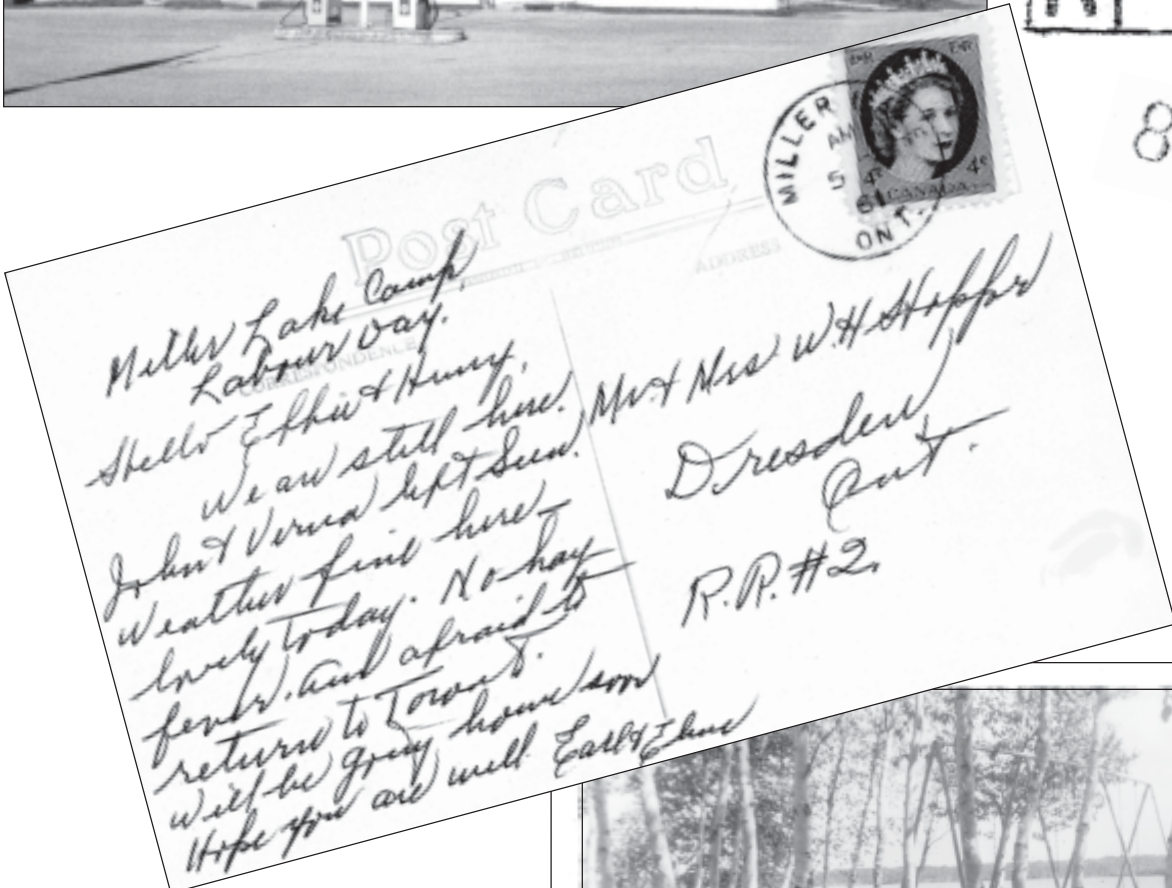 Post Card
CORRESPONDENCE
ADDRESS
MILLER
AM
5
61
ONT.
4¢ 4¢
CANADA
Miller Lake Camp,
Labour Day.
Hello Effie & Henry,
We are still here.
John & Verna left Sun.
Weather fine here–
lovely today. No hay
fever. And afraid to
return to Toront.
Will be going home soon
Hope you are well Earl &
Mr & Mrs W.H
Dresden
Ont.
R.R. #2.
8